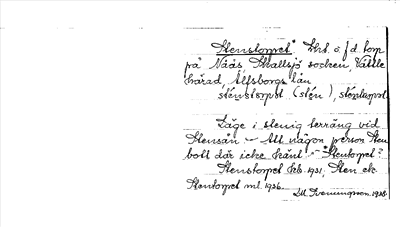 Stenstorpet" Lht. o. f.d. torp
på Nääs, Skallsjö socken, Vättle
härad, Älfsborgs län
sténstorpet (stén), sténtorpet
Läge i stenig terräng vid
Stensån. – Att någon person Sten
bott där icke känt. – "Stentorpet"?
Stenstorpet hfs. 1931, Sten ek.
Stentorpet ml. 1936.
D.M. Svenungsson. 1938.